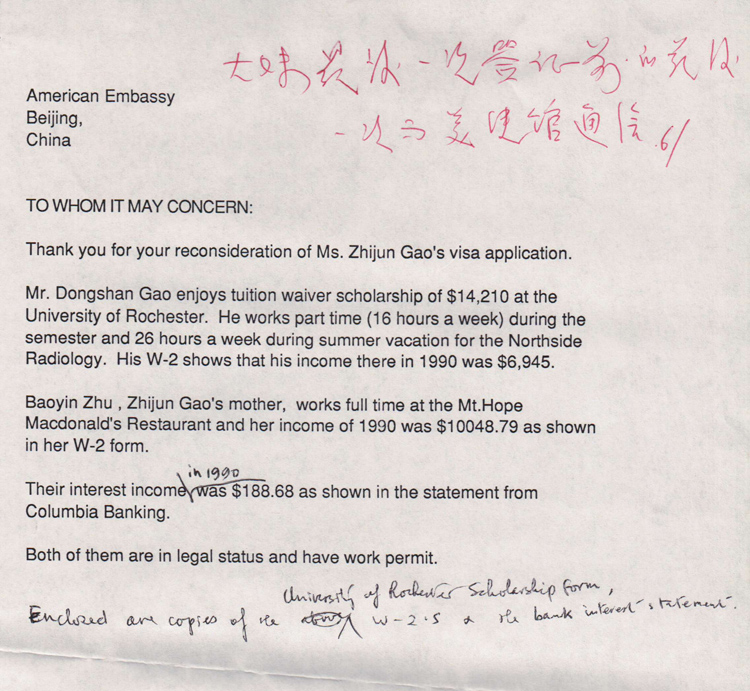 大妹最后一次签证前的最后
一次与美使馆通信.6/
American Embassy
Beijing,
China
TO WHOM IT MAY CONCERN:
Thank you for your reconsideration of Ms. Zhijun Gao's visa application.
Mr. Dongshan Gao enjoys tuition waiver scholarship of $14,210 at the
University of Rochester. He works part time (16 hours a week) during the
semester and 26 hours a week during summer vacation for the Northside
Radiology. His W-2 shows that his income there in 1990 was $6,945.
Baoyin Zhu , Zhijun Gao's mother, works full time at the Mt.Hope
Macdonald's Restaurant and her income of 1990 was $10048.79 as shown
in her W-2 form.
in 1990
Their interest income was $188.68 as shown in the statement from
Columbia Banking.
Both of them are in legal status and have work permit.
University of Rochester Scholarship Form,
Enclosed are copies of the W-2's & the bank interest statement.